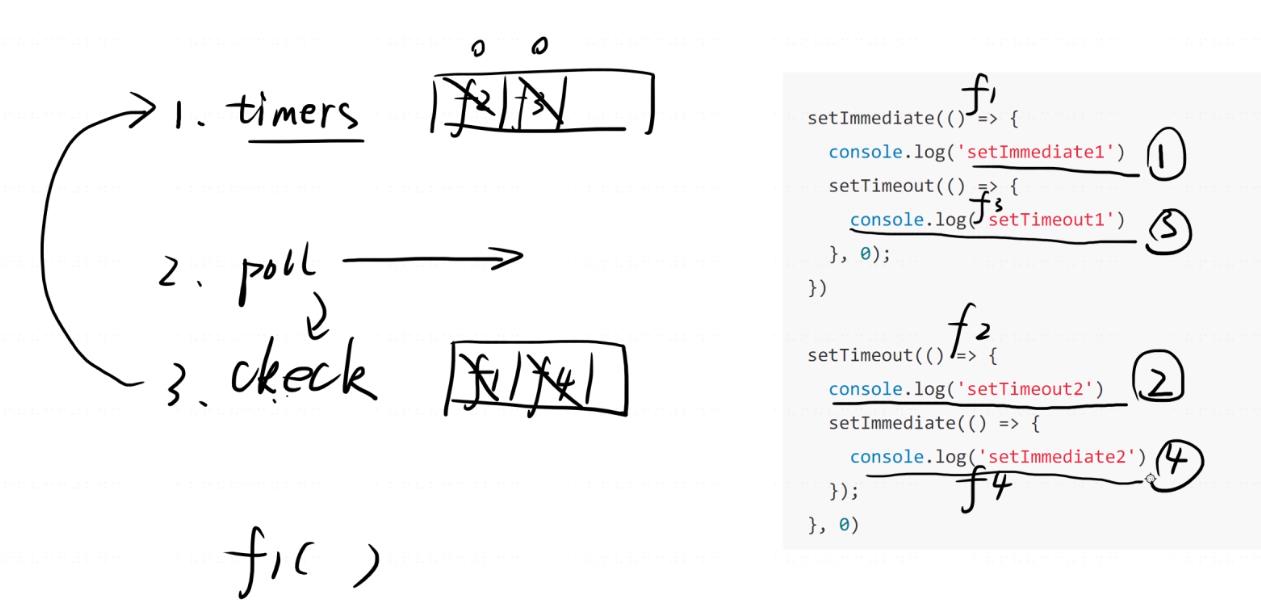 0 0
1. timers f2 f3
2. poll
3. check f1 f4
f1( )
f1
setImmediate(() => {
console.log('setImmediate1') 1
setTimeout(() => {
f3
console.log('setTimeout1') 3
}, 0);
})
f2
setTimeout(() => {
console.log('setTimeout2') 2
setImmediate(() => {
console.log('setImmediate2') 4
f4
});
}, 0)